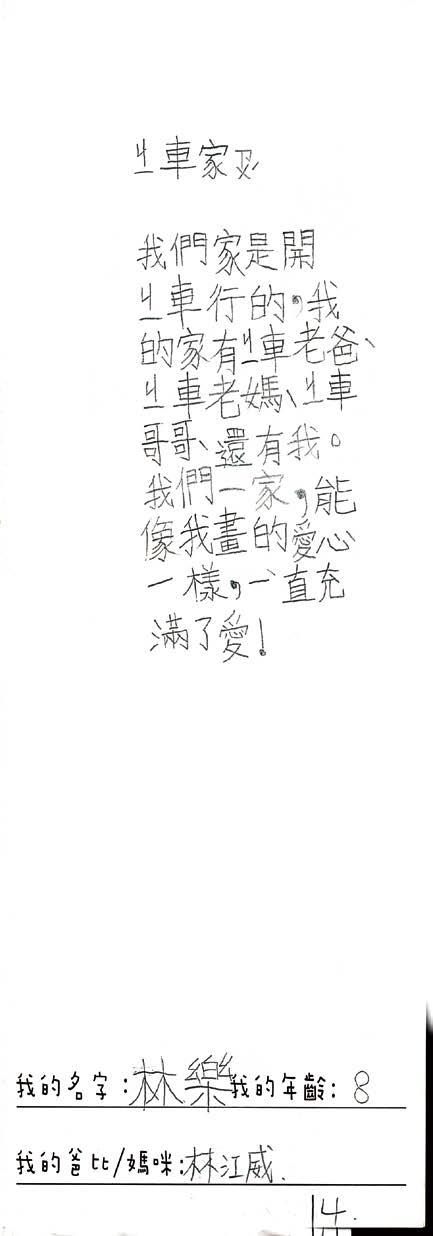 ㄐㄧ車家ㄗㄨˊ
我們家是開
ㄐㄧ車行的，我
的家有ㄐㄧ車老爸、
ㄐㄧ車老媽、ㄐㄧ車
哥哥、還有我。
我們一家，能
像我畫的愛心
一樣，一直充
滿了愛！
我的名字：林樂 我的年齡：8
我的爸比/媽咪：林江威
14.